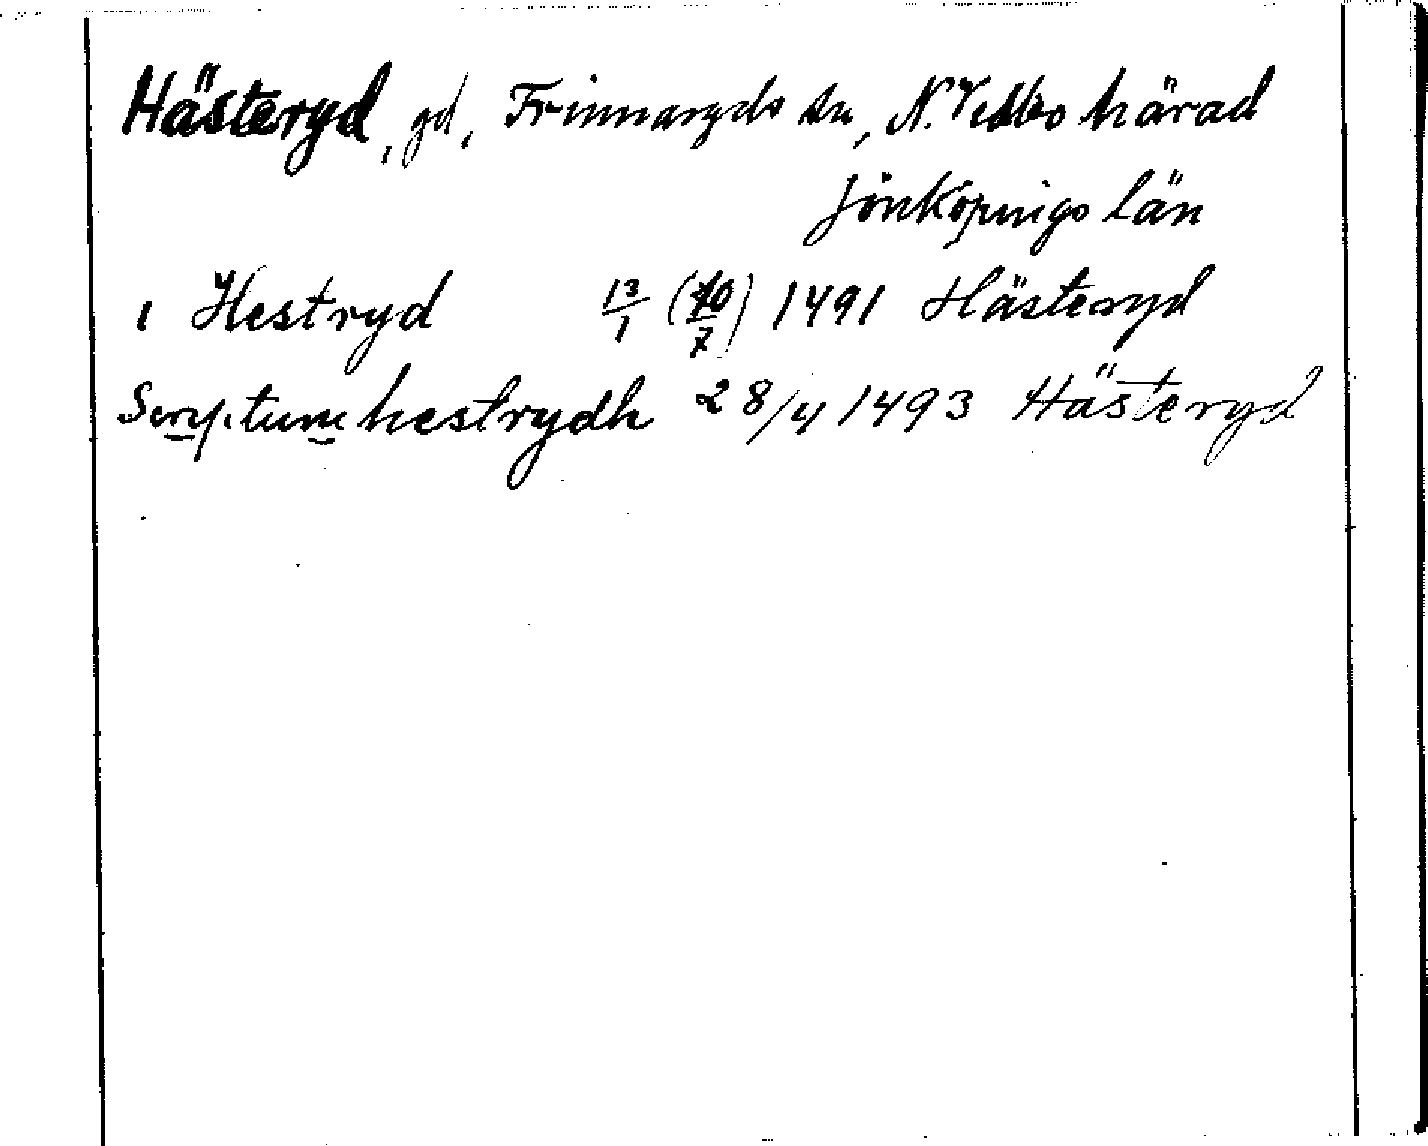 Hästeryd, gd, Frinnaryds sn, N. Vedbo härad
Jönköpings län
i Hestryd 13/1 (10/7) 1491 Hästeryd
Scriptum hestrydh 28/4 1493 Hästeryd